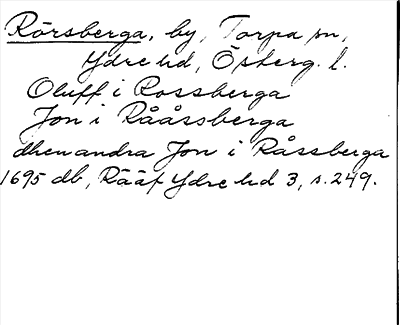 Rörsberga, by, Torpa sn,
Ydre hd, Österg. l.
Oluff i Rossberga
Jon i Rååssberga
dhen andra Jon i Råssberga
1695 db, Rääf Ydre hd 3, s. 249.